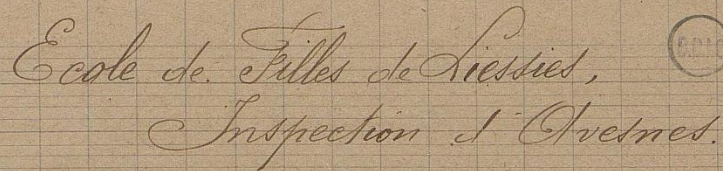 Ecole de Filles de Liessies,
Inspection d'Avesnes.